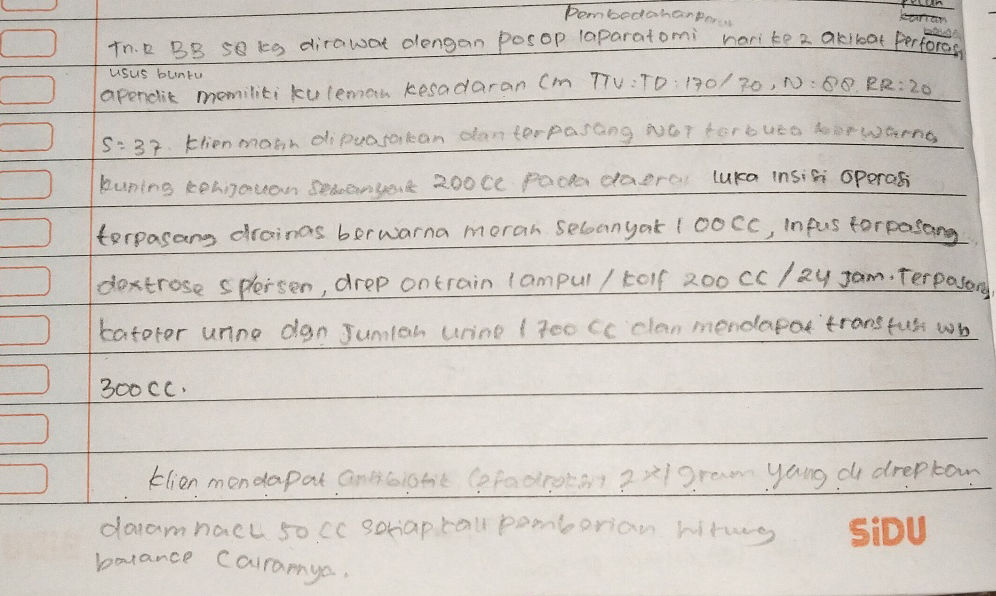 Pembedahan Perut
Tn.R BB 58 kg dirawat dengan posop laparatomi hari ke 2 akibat Perforasi
usus buntu
apendik memiliki keleman kesadaran Cm TTV: TD: 170/70, N: 88, RR: 20
S: 37. klien masih dipuasakan dan terpasang NGT terbuka berwarna
kuning kehijauan sebanyak 200 CC Pada daerah luka insisi operasi
terpasang drainas berwarna merah sebanyak 100 CC, infus terpasang
dextrose 5 persen, drep ontrain 1 ampul / kolf 200 CC / 24 Jam. Terpasang
kateter urine dgn Jumlah urine 1700 CC dan mendapat transfusi wb
300 CC.
klien mendapat antibiotik Cefadroxin 2x1 gram yang di drepkan
dalam nacl 50 CC setiap kali pemberian hitung
balance Cairannya.
SiDU